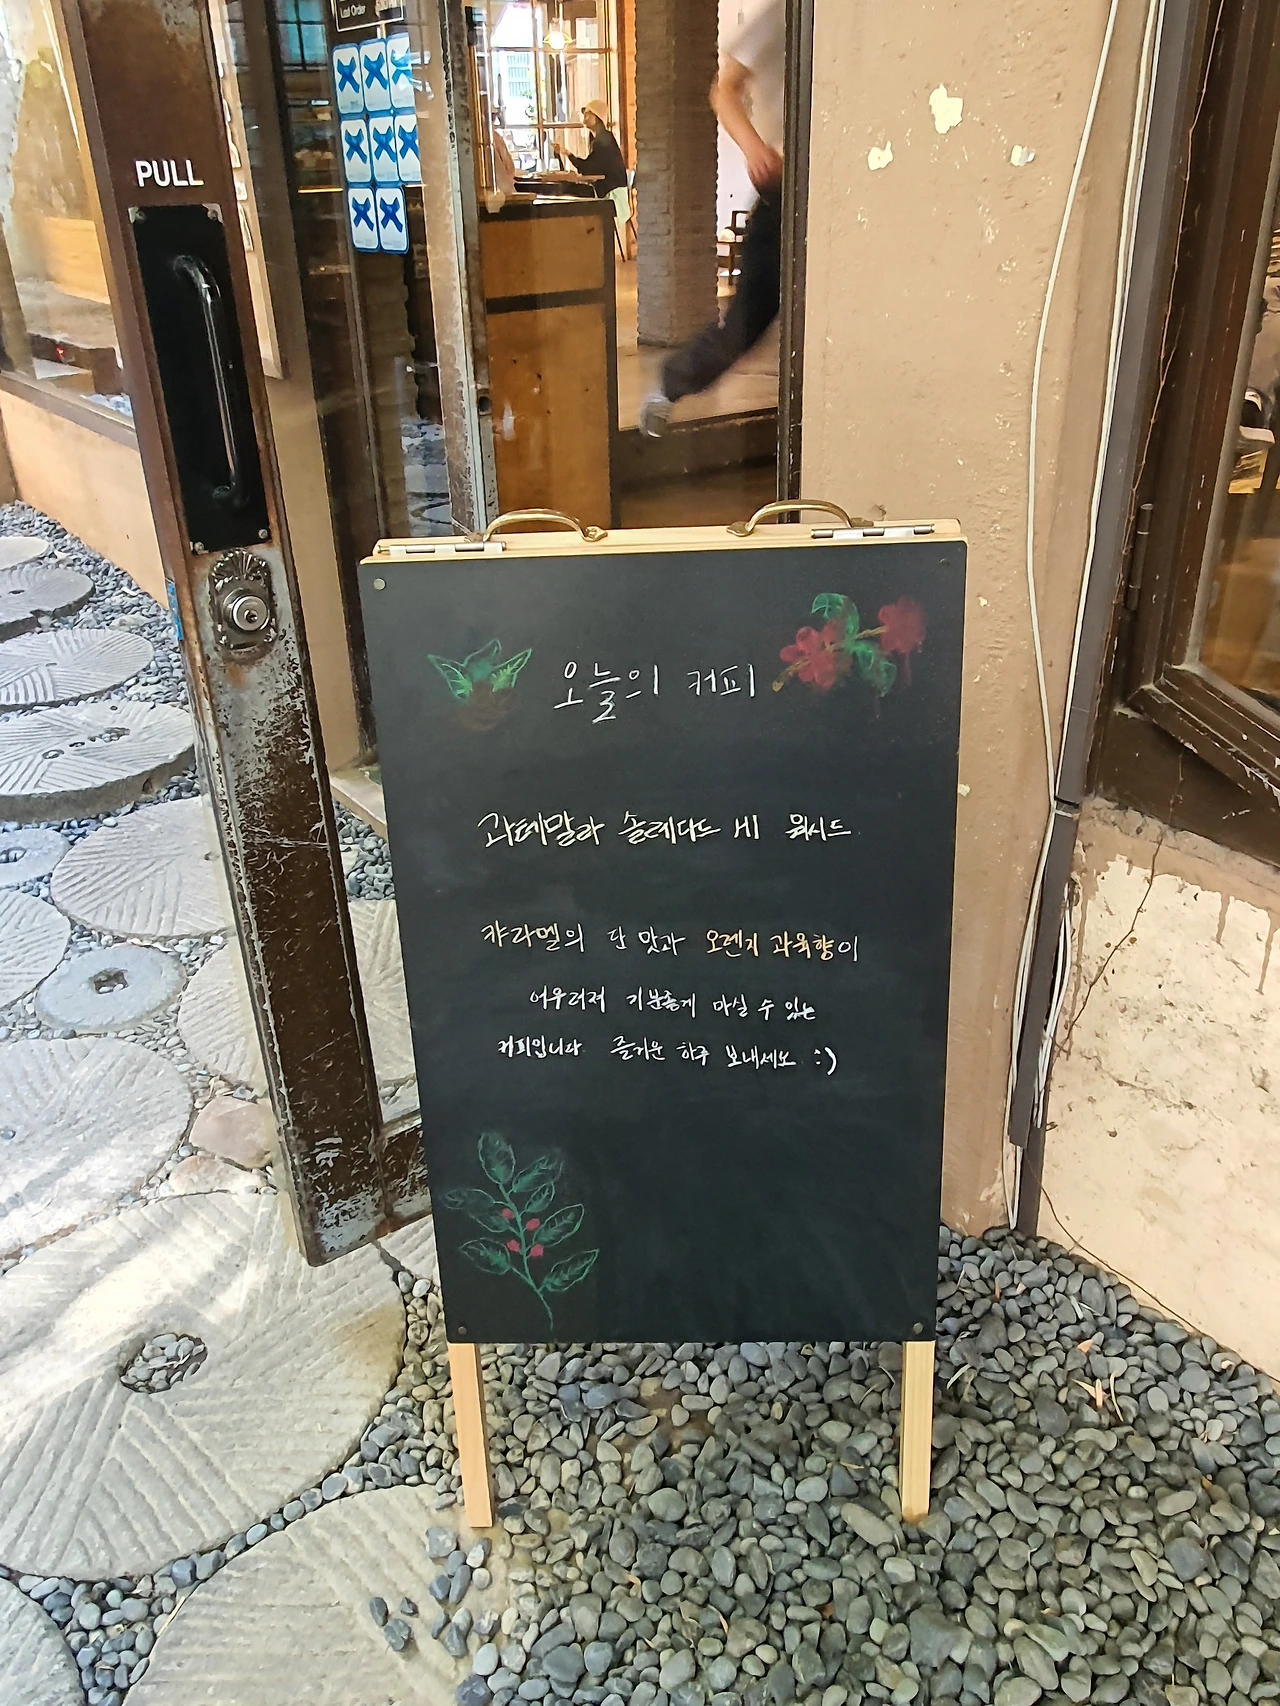 Last Order
PULL
오늘의 커피
과테말라 솔레다드 HI 워시드
캬라멜의 단 맛과 오렌지 과육향이
어우러져 기분좋게 마실 수 있는
커피입니다 즐거운 하루 보내세요 :)